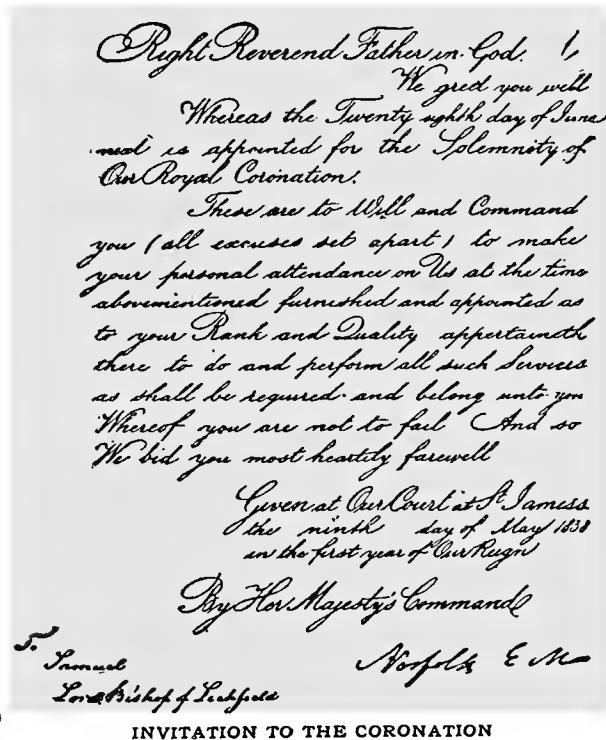 Right Reverend Father in God.
We greet you well
Whereas the Twenty eighth day of June
next is appointed for the Solemnity of
Our Royal Coronation.
These are to Will and Command
you (all excuses set apart) to make
your personal attendance on Us at the time
abovementioned furnished and appointed as
to your Rank and Quality appertaineth
there to do and perform all such Services
as shall be required and belong unto you
Whereof you are not to fail And so
We bid you most heartily farewell
Given at Our Court at St. James's
the ninth day of May 1838
in the first year of Our Reign
By Her Majesty's Command
Norfolk E M
Samuel
Lord Bishop of Lichfield
INVITATION TO THE CORONATION